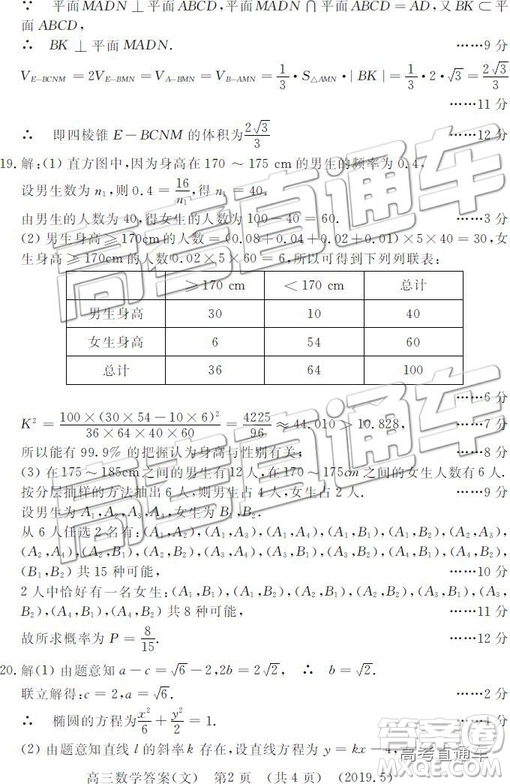 ∵ 平面 MADN ⊥ 平面 ABCD, 平面 MADN ∩ 平面 ABCD = AD, 又 BK ⊂ 平
面 ABCD,
∴ BK ⊥ 平面 MADN. ……9 分
V_{E-BCNM} = 2V_{E-BMN} = V_{A-BMN} = V_{B-AMN} = 1/3 · S_{△AMN} · | BK | = 1/3 · 2 · √3 = 2√3/3
……11 分
∴ 即四棱锥 E-BCNM 的体积为 2√3/3 ……12 分
19. 解: (1) 直方图中, 因为身高在 170 ~ 175 cm 的男生的频率为 0.4,
设男生数为 n₁, 则 0.4 = 16/n₁, 得 n₁ = 40,
由男生的人数为 40, 得女生的人数为 100 - 40 = 60. ……3 分
(2) 男生身高 ⩾ 170cm 的人数 = (0.08 + 0.04 + 0.02 + 0.01) × 5 × 40 = 30, 女
生身高 ⩾ 170cm 的人数 0.02 × 5 × 60 = 6, 所以可得到下列列联表:
⩾ 170 cm < 170 cm 总计
男生身高 30 10 40
女生身高 6 54 60
总计 36 64 100
……6 分
K² = 100 × (30 × 54 - 10 × 6)² / 36 × 64 × 40 × 60 = 4225/96 ≈ 44.010 > 10.828, ……7 分
所以能有 99.9% 的把握认为身高与性别有关; ……8 分
(3) 在 175 ~ 185cm 之间的男生有 12 人, 在 170 ~ 175cm 之间的女生人数有 6 人.
按分层抽样的方法抽出 6 人, 则男生占 4 人, 女生占 2 人. ……9 分
设男生为 A₁, A₂, A₃, A₄, 女生为 B₁, B₂.
从 6 人任选 2 名有: (A₁, A₂), (A₁, A₃), (A₁, A₄), (A₁, B₁), (A₁, B₂), (A₂, A₃),
(A₂, A₄), (A₂, B₁), (A₂, B₂), (A₃, A₄), (A₃, B₁), (A₃, B₂), (A₄, B₁), (A₄, B₂),
(B₁, B₂) 共 15 种可能, ……10 分
2 人中恰好有一名女生: (A₁, B₁), (A₁, B₂), (A₂, B₁), (A₂, B₂), (A₃, B₁), (A₃,
B₂), (A₄, B₁), (A₄, B₂) 共 8 种可能, ……11 分
故所求概率为 P = 8/15. ……12 分
20. 解 (1) 由题意知 a - c = √6 - 2, 2b = 2√2, ∴ b = √2.
联立解得: c = 2, a = √6. ……2 分
∴ 椭圆的方程为 x²/6 + y²/2 = 1.
(2) 由题意知直线 l 的斜率 k 存在, 设直线方程为 y = kx
高三数学答案(文) 第2页 (共4页) (2019.5)
高考直通车
高考直通车
高考直通车
答案圈
MXQE.COM
高考直通车